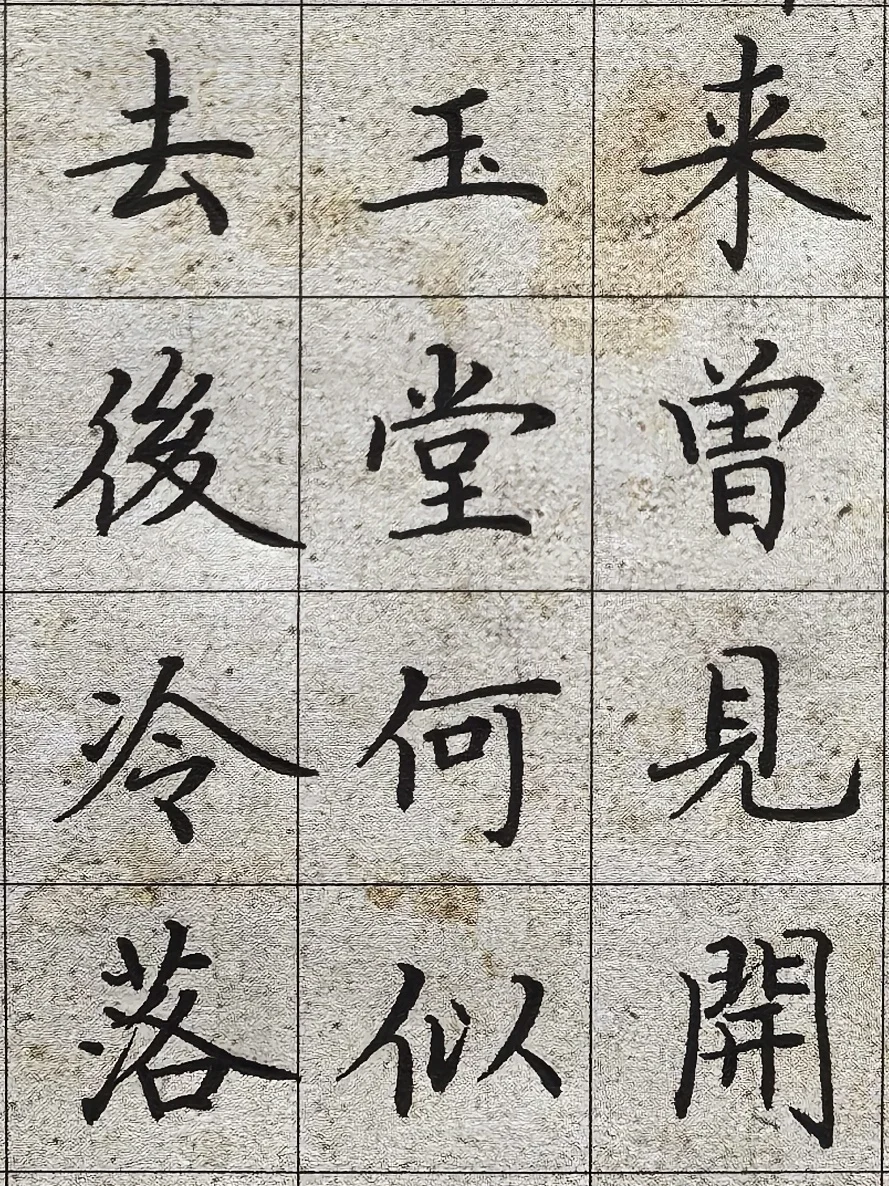 来曾見開
玉堂何似
去後冷落